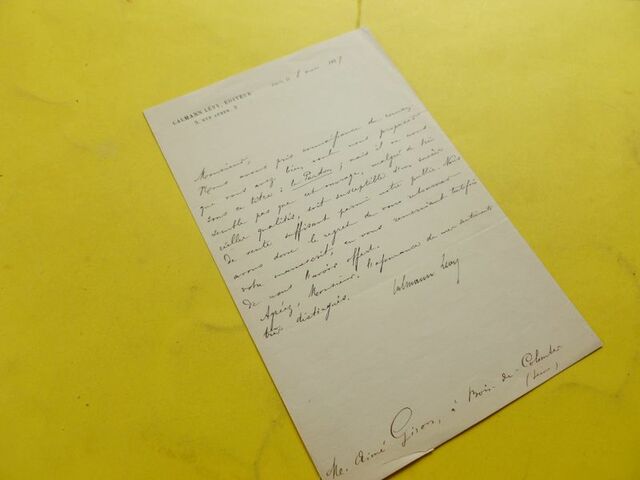 CALMANN LÉVY, ÉDITEUR
3, RUE AUBER, 3
Paris, le 8 mars
Monsieur,
Nous avons pris connaissance du roman
que vous avez bien voulu nous proposer
sous ce titre : le Pardon ; mais il ne nous
semble pas que cet ouvrage, malgré de
réelles qualités, soit susceptible d'un succès
de vente suffisant parmi notre public. Nous
avons donc le regret de vous retourner
votre manuscrit, en vous remerciant toutefois
de nous l'avoir offert.
Agréez, Monsieur, l'assurance de mes sentiments
très distingués.
Calmann Lévy
Mr. Aimé Giron, à Bois-de-Colombes
(Seine)